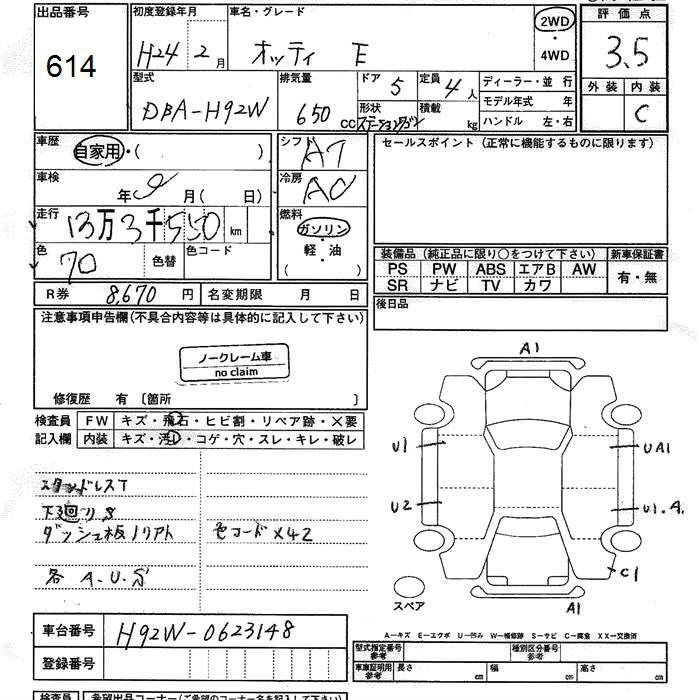 出品番号
614
初度登録年月
H24年2月
車名・グレード
オッティ E
2WD
・
4WD
評価点
3.5
外装 内装
C
型式
DBA-H92W
排気量
650 CC
ドア 5
形状
ステーションワゴン
定員 4人
積載 kg
ディーラー・並行
モデル年式 年
ハンドル 左・右
車歴
自家用・( )
シフト
AT
セールスポイント (正常に機能するものに限ります)
車検
年 9月( 日)
冷房
AC
走行
13万3千550 km
燃料
ガソリン
・
軽・油
( )
色
70
色替
色コード
装備品 (純正品に限り○をつけて下さい)
新車保証書
PS PW ABS エアB AW
SR ナビ TV カワ
有・無
R券 8,670円
名変期限 月 日
後日品
注意事項申告欄(不具合内容等は具体的に記入して下さい)
ノークレーム車
no claim
修復歴 有 〔箇所 〕
検査員
記入欄
FW キズ・飛石・ヒビ割・リペア跡・X要
内装 キズ・汚レ・コゲ・穴・スレ・キレ・破レ
スタッドレスT
下廻りS
ダッシュ板ノリアト
色コードX42
各 A.U.分
A1
U1
UA1
U2
U1.A.
C1
A1
スペア
車台番号 H92W-0623148
登録番号
A—キズ E—エクボ U—凹み W—補修跡 S—サビ C—腐食 XX—交換済
型式指定番号
参考
種別区分番号
参考
車庫証明用
参考
長さ cm
幅 cm
高さ cm
検査員
希望出品コーナー(ご希望のコーナー名を記入下さい)